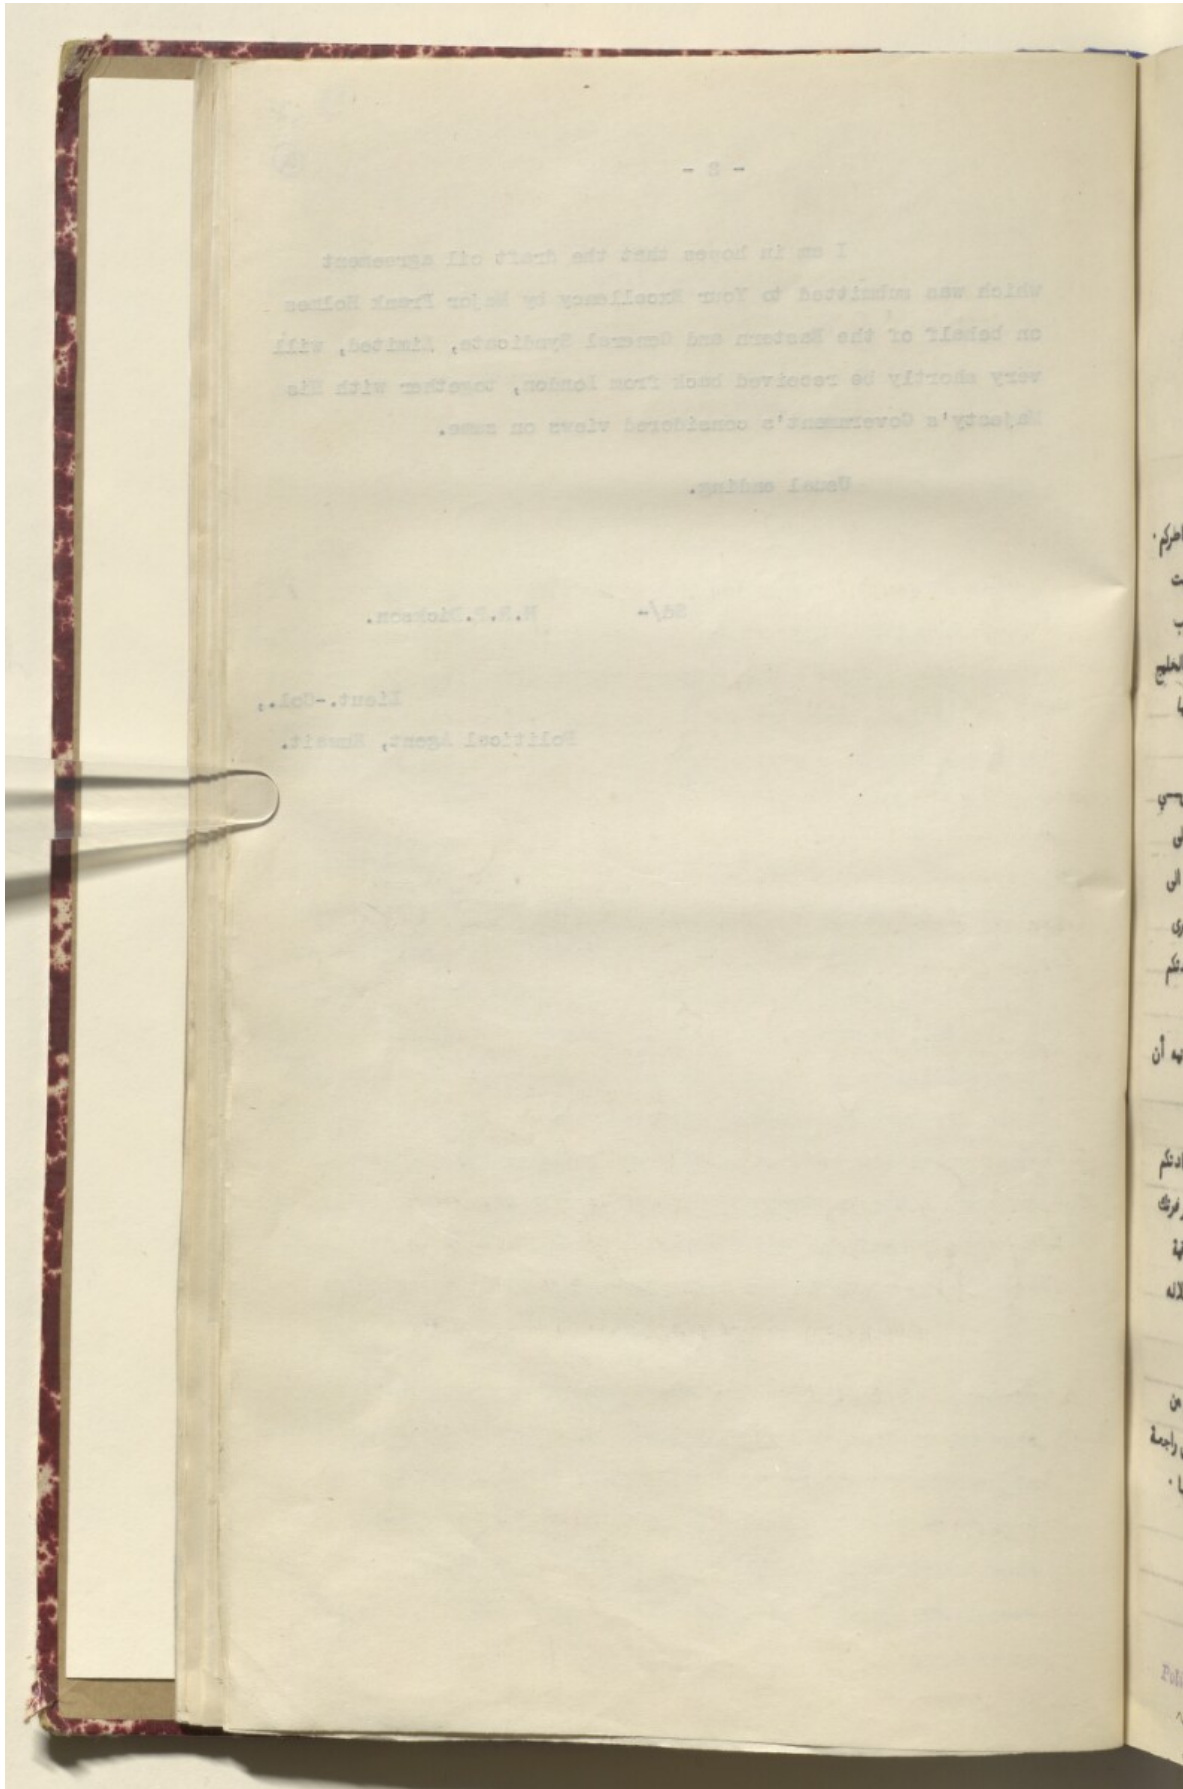 - 2 -
I am in hopes that the draft oil agreement
which was submitted to Your Excellency by Major Frank Holmes
on behalf of the Eastern and General Syndicate, Limited, will
very shortly be received back from London, together with His
Majesty's Government's considered views on same.
Usual ending.
Sd/- H.R.P.Dickson.
Lieut.-Col.,
Political Agent, Kuwait.
الى
أن
من